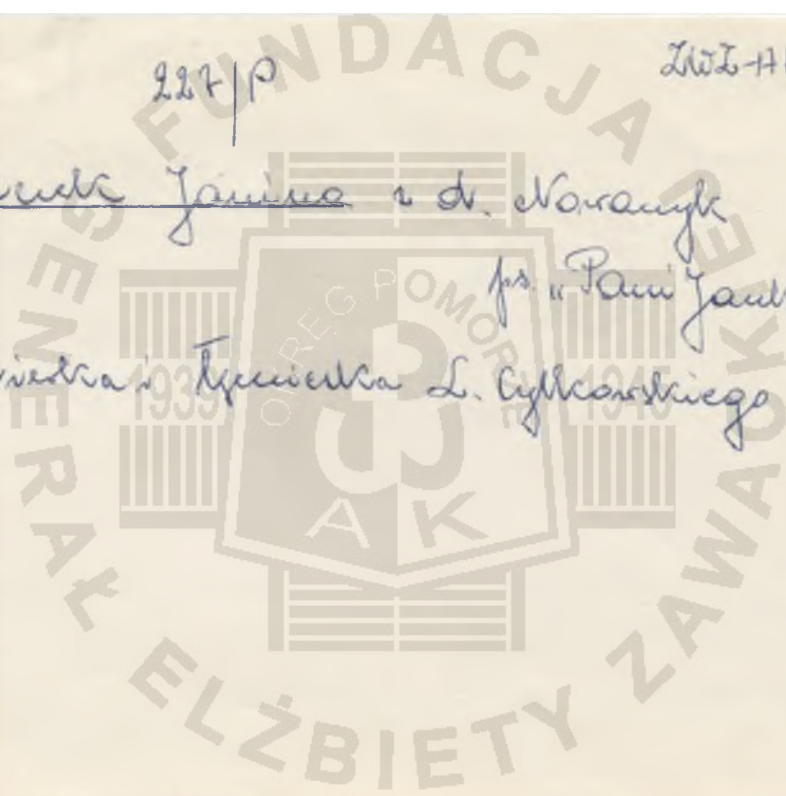 227/P
ZWZ-A
Janina z d. Nowaczyk
ps. "Pani Jan
i łączniczka L. Cylkowskiego
FUNDACJA
GENERAŁ ELŻBIETY ZAWACKIEJ
OKRĘG POMORZE
1939 1945
AK